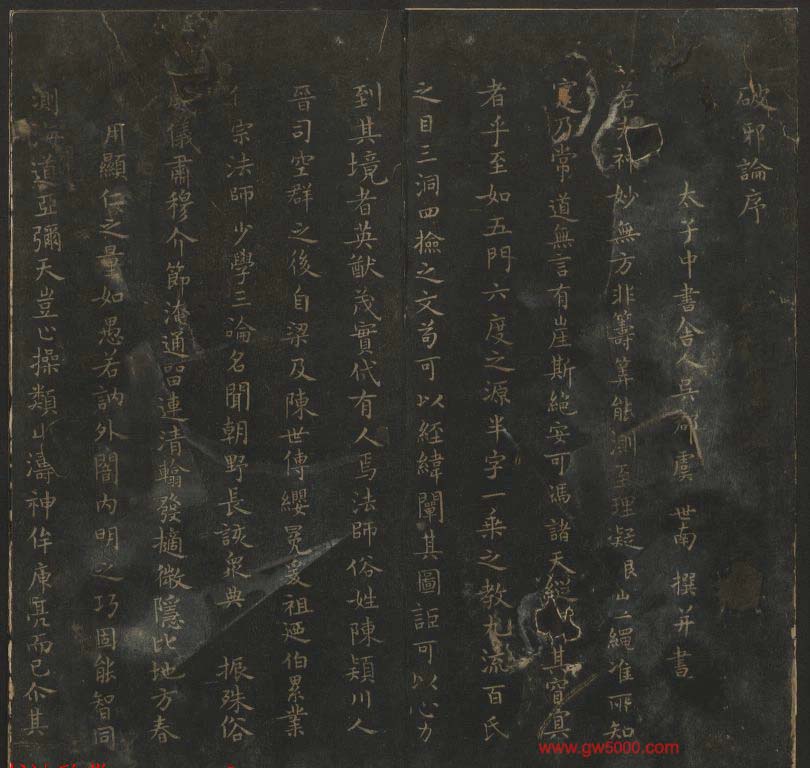 破邪論序
太子中書舍人吳郡虞世南撰并書
若夫神妙無方非籌筭能測至理凝 一繩准所知
寔乃常道無言有崖斯絕安可馮諸天 其窅冥
者乎至如五門六度之源半字一乘之教九流百氏
之目三洞四撿之文苟可以經緯闡其圖詎可以心力
到其境者英猷茂實代有人焉法師俗姓陳潁川人
晉司空群之後自梁及陳世傳纓冕爰祖迺伯累業
宗法師少學三論名聞朝野長該眾典 振殊俗
儀肅穆介節淹通留連清翰發擿微隱比地方春
用顯仁之量如愚若訥外闇內明之巧固能智同
測海道亞彌天豈止操類山濤神侔庾亮而已介其
www.gw5000.com